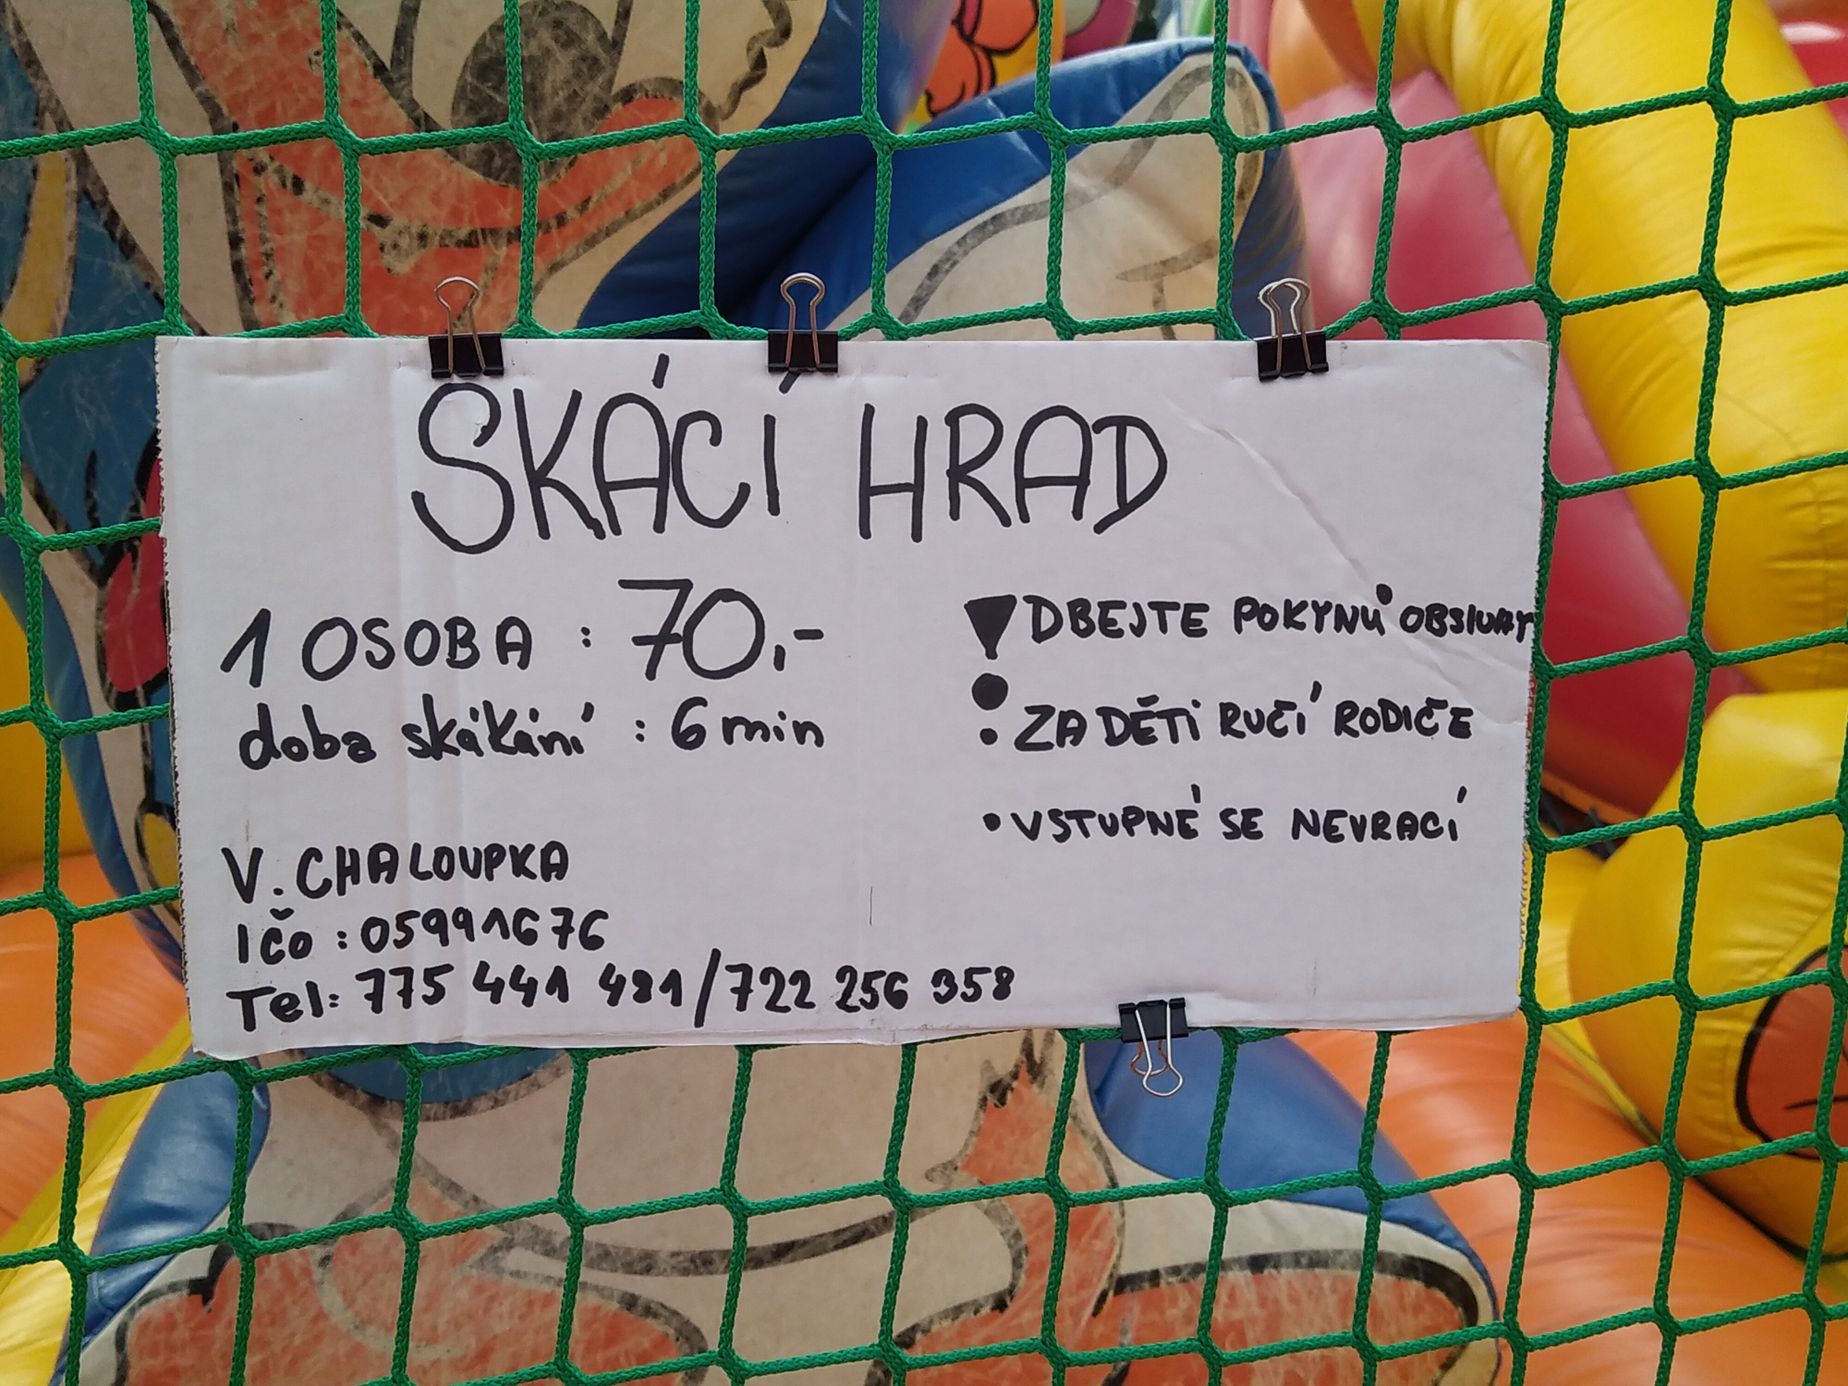 SKÁCÍ HRAD
1 OSOBA : 70,-
doba skákání : 6 min
! DBEJTE POKYNŮ OBSLUHY
• ZA DĚTI RUČÍ RODIČE
• VSTUPNÉ SE NEVRACÍ
V. CHALOUPKA
IČO : 05991676
Tel: 775 441 481/722 256 358